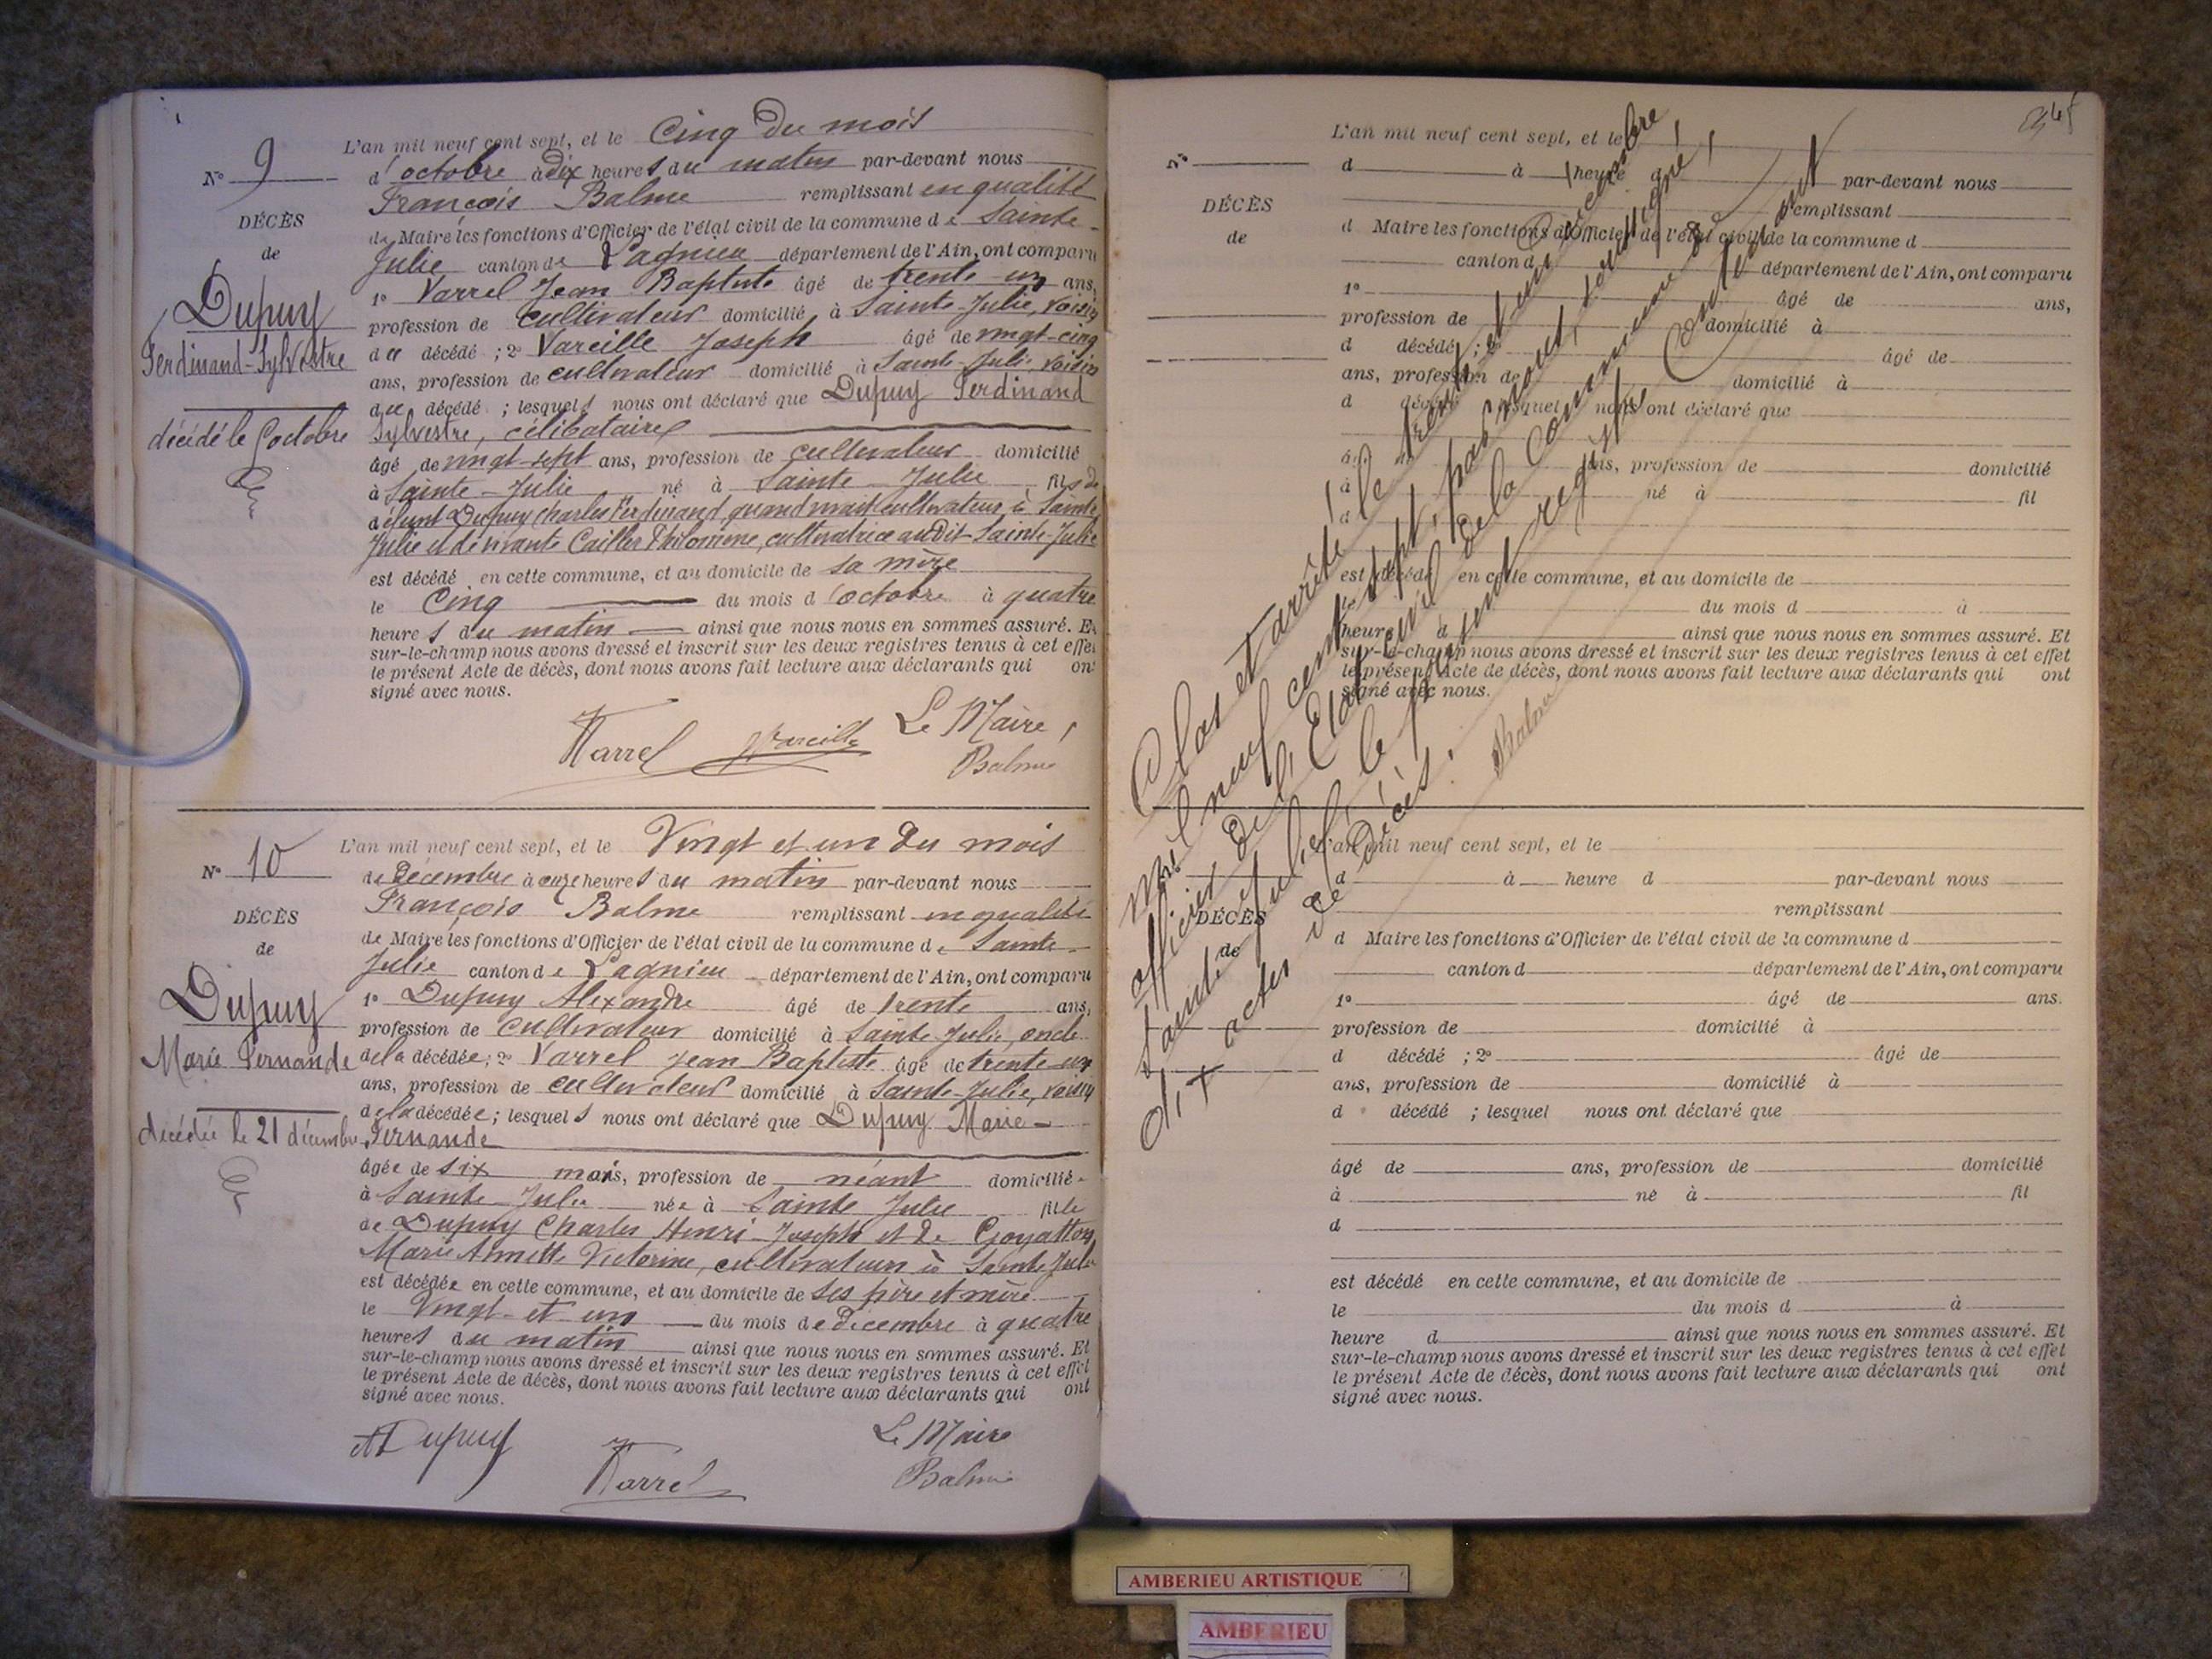 L'an mil neuf cent sept, et le Cinq du mois
N° 9
d'octobre à dix heures du matin par-devant nous
François Balme remplissant en qualité
DÉCÈS
de Maire les fonctions d'Officier de l'état civil de la commune de Sainte-
de
Julie canton de Lagnieu département de l'Ain, ont comparu
1° Varrel Jean Baptiste âgé de trente un ans,
Dupuy
profession de cultivateur domicilié à Sainte-Julie, voisin
Ferdinand-Sylvestre
du décédé ; 2° Vareille Joseph âgé de vingt-cinq
ans, profession de cultivateur domicilié à Sainte-Julie, voisin
du décédé ; lesquels nous ont déclaré que Dupuy Ferdinand
décédé le 5 octobre
Sylvestre, célibataire
âgé de vingt-sept ans, profession de cultivateur domicilié
à Sainte-Julie né à Sainte-Julie fils de
défunt Dupuy Charles Ferdinand, quand vivait cultivateur à Sainte
Julie et de vivante Cailler Philomène, cultivatrice audit Sainte-Julie
est décédé en cette commune, et au domicile de sa mère
le Cinq du mois d'octobre à quatre
heures du matin ainsi que nous nous en sommes assuré. Et
sur-le-champ nous avons dressé et inscrit sur les deux registres tenus à cet effet
le présent Acte de décès, dont nous avons fait lecture aux déclarants qui ont
signé avec nous.
Varrel Vareille Le Maire,
Balme
L'an mil neuf cent sept, et le Vingt et un du mois
N° 10
de Décembre à onze heures du matin par-devant nous
François Balme remplissant en qualité
DÉCÈS
de Maire les fonctions d'Officier de l'état civil de la commune de Sainte-
de
Julie canton de Lagnieu département de l'Ain, ont comparu
1° Dupuy Alexandre âgé de trente ans,
Dupuy
profession de cultivateur domicilié à Sainte Julie, oncle
Marie Fernande
de la décédée ; 2° Varrel Jean Baptiste âgé de trente un
ans, profession de cultivateur domicilié à Sainte-Julie, voisin
de la décédée ; lesquels nous ont déclaré que Dupuy Marie-
décédée le 21 décembre
Fernande
âgée de six mois, profession de néant domiciliée
à Sainte-Julie née à Sainte Julie fille
de Dupuy Charles Henri-Joseph et de Goyatton
Marie Annette Victorine, cultivateurs à Sainte Julie
est décédée en cette commune, et au domicile de ses père et mère
le Vingt-et un du mois de Décembre à quatre
heures du matin ainsi que nous nous en sommes assuré. Et
sur-le-champ nous avons dressé et inscrit sur les deux registres tenus à cet effet
le présent Acte de décès, dont nous avons fait lecture aux déclarants qui ont
signé avec nous.
A Dupuy Varrel Le Maire
Balme
L'an mil neuf cent sept, et le
N°
d à heure d par-devant nous
remplissant
DÉCÈS
d Maire les fonctions d'Officier de l'état civil de la commune d
de
canton d département de l'Ain, ont comparu
1° âgé de ans,
profession de domicilié à
d décédé ; 2° âgé de
ans, profession de domicilié à
d décédé ; lesquel nous ont déclaré que
âgé de ans, profession de domicilié
à né à fil
d
est décédé en cette commune, et au domicile de
le du mois d à
heure d ainsi que nous nous en sommes assuré. Et
sur-le-champ nous avons dressé et inscrit sur les deux registres tenus à cet effet
le présent Acte de décès, dont nous avons fait lecture aux déclarants qui ont
signé avec nous.
Clos et arrêté le trente et un décembre
mil neuf cent sept, par nous, soussigné,
officier de l'Etat civil de la commune de
Sainte Julie, le présent registre contenant
dix actes de décès.
Balme
L'an mil neuf cent sept, et le
d à heure d par-devant nous
remplissant
DÉCÈS
d Maire les fonctions d'Officier de l'état civil de la commune d
de
canton d département de l'Ain, ont comparu
1° âgé de ans.
profession de domicilié à
d décédé ; 2° âgé de
ans, profession de domicilié à
d décédé ; lesquel nous ont déclaré que
âgé de ans, profession de domicilié
à né à fil
d
est décédé en cette commune, et au domicile de
le du mois d à
heure d ainsi que nous nous en sommes assuré. Et
sur-le-champ nous avons dressé et inscrit sur les deux registres tenus à cet effet
le présent Acte de décès, dont nous avons fait lecture aux déclarants qui ont
signé avec nous.
AMBERIEU ARTISTIQUE
AMBERIEU